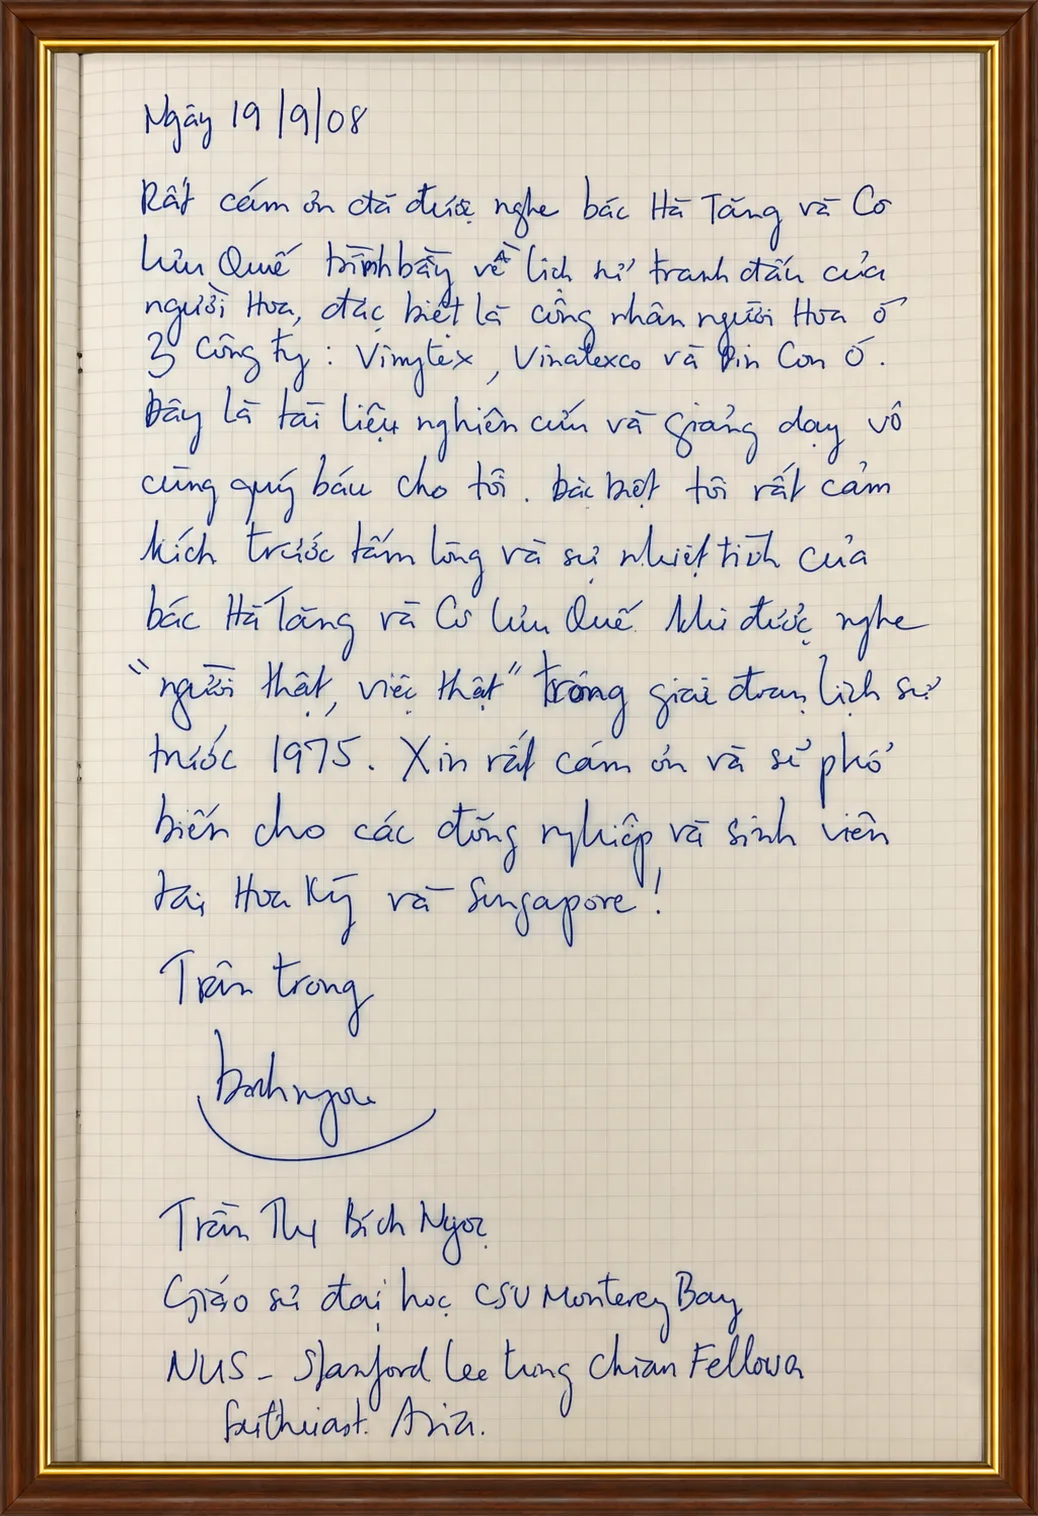 Ngày 19/9/08
Rất cám ơn đã được nghe bác Hà Tăng và Cô
Lưu Quế trình bầy về lịch sử tranh đấu của
người Hoa, đặc biệt là công nhân người Hoa ở
3 Công ty: Vimytex, Vinatexco và Pin Con Ó.
Đây là tài liệu nghiên cứu và giảng dạy vô
cùng quý báu cho tôi. Đặc biệt tôi rất cảm
kích trước tấm lòng và sự nhiệt tình của
bác Hà Tăng và Cô Lưu Quế khi được nghe
“người thật, việc thật” trong giai đoạn lịch sử
trước 1975. Xin rất cám ơn và sẽ phổ
biến cho các đồng nghiệp và sinh viên
tại Hoa Kỳ và Singapore!
Trân trọng
bichngoc
Trần Thị Bích Ngọc
Giáo sư đại học CSU Monterey Bay
NUS - Stanford Lee Kong Chian Fellow
Southeast Asia.